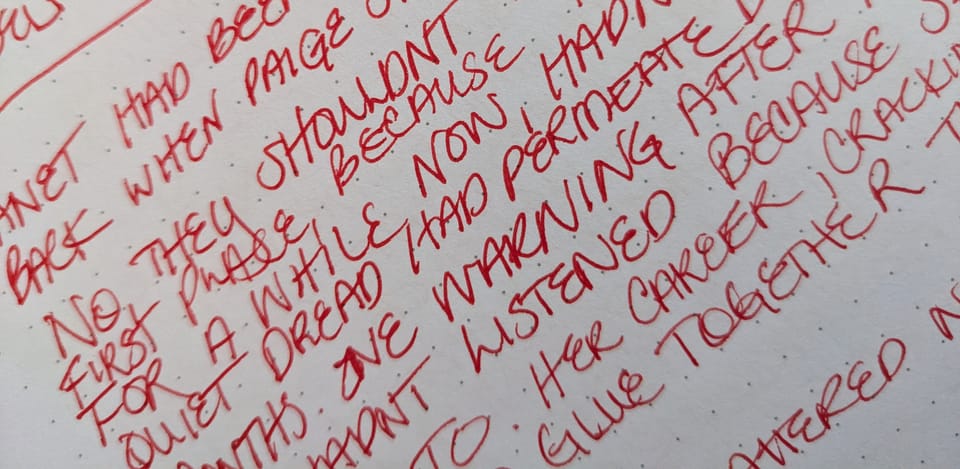 ANET HAD BEE
BACK WHEN PAIGE
NO. THEY SHOULDNT
FIRST PHASE, BECAUSE
FOR A WHILE NOW, HADN
QUIET DREAD HAD PERMEATED
NTHS. ONE WARNING AFTER
HADNT LISTENED BECAUSE S
TO HER CAREER, CRACKIN
GLUE TOGETHER T